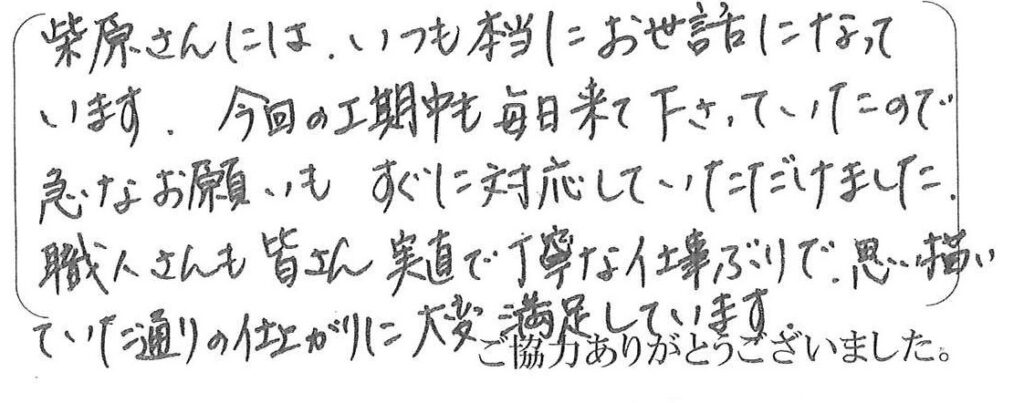 柴原さんには、いつも本当にお世話になって
います。今回の工期中も毎日来て下さっていたので
急なお願いもすぐに対応していただけました。
職人さんも皆さん実直で丁寧な仕事ぶりで、思い描い
ていた通りの仕上がりに大変満足しています。
ご協力ありがとうございました。